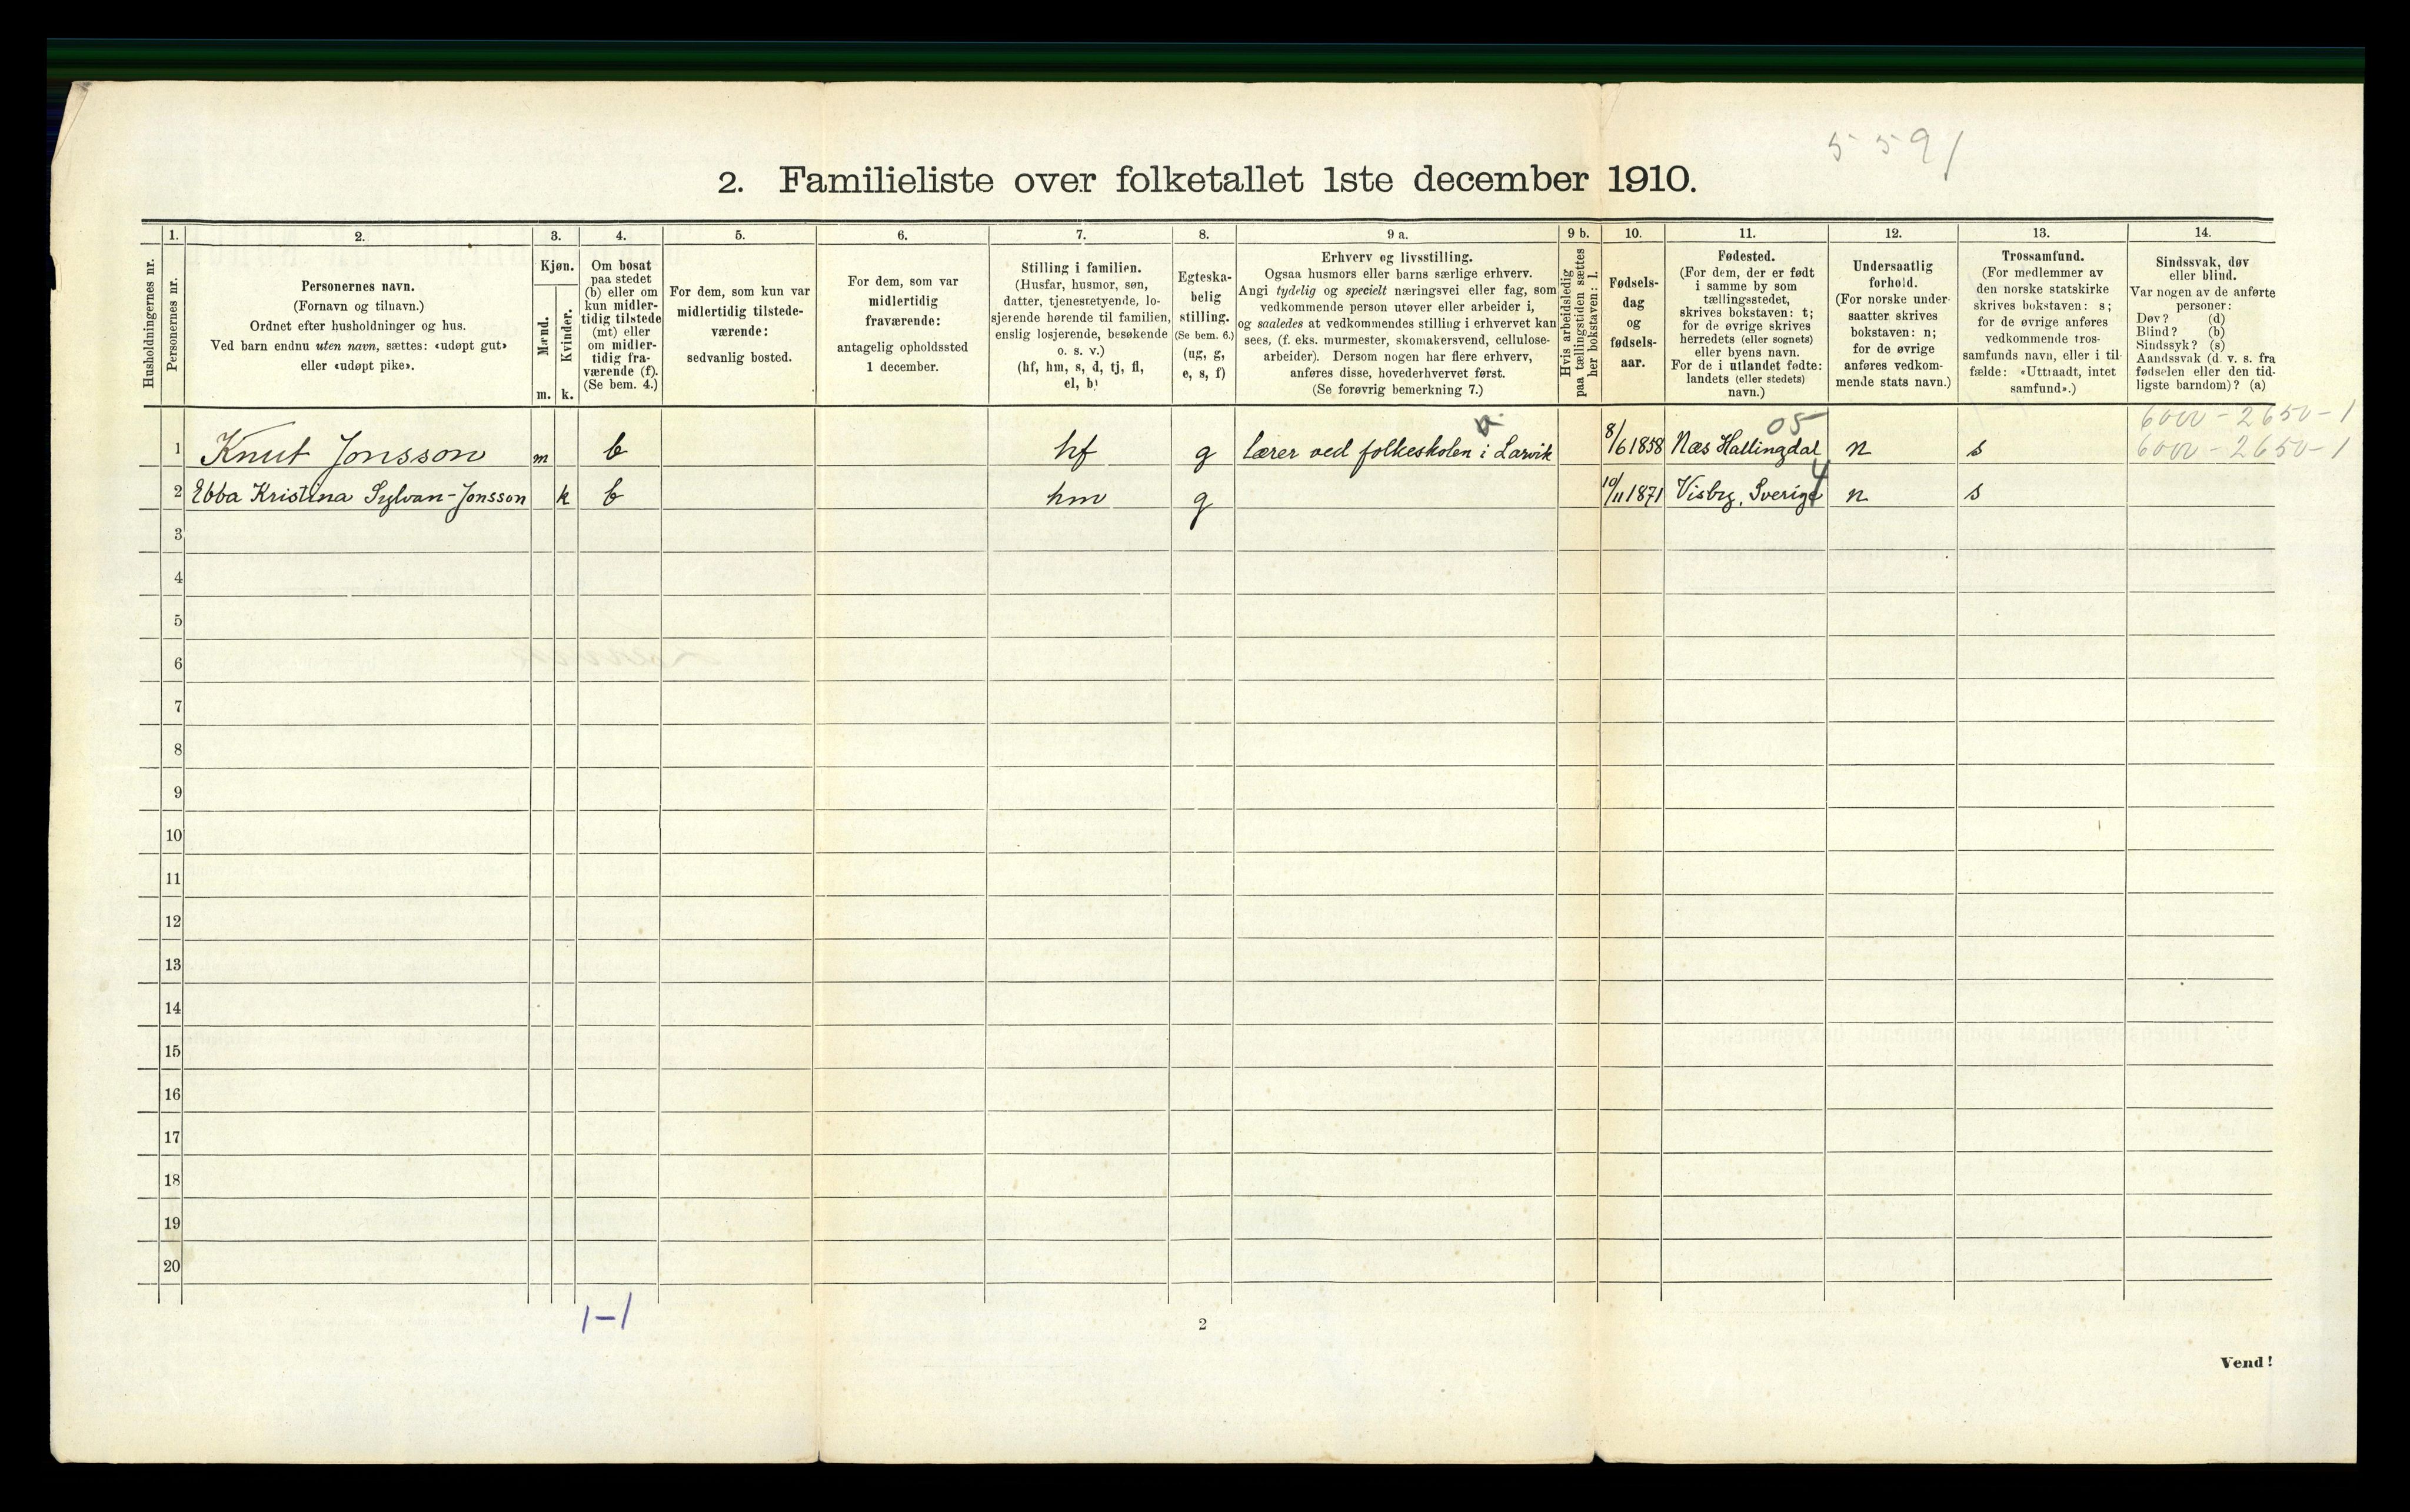 5591
2. Familieliste over folketallet 1ste december 1910.
Husholdningernes nr.
1.
Personernes nr.
2.
Personernes navn.
(Fornavn og tilnavn.)
Ordnet efter husholdninger og hus.
Ved barn endnu uten navn, sættes: «udøpt gut»
eller «udøpt pike».
3.
Kjøn.
Mænd.
Kvinder.
m.
k.
4.
Om bosat
paa stedet
(b) eller om
kun midler-
tidig tilstede
(mt) eller
om midler-
tidig fra-
værende (f).
(Se bem. 4.)
5.
For dem, som kun var
midlertidig tilstede-
værende:
sedvanlig bosted.
6.
For dem, som var
midlertidig
fraværende:
antagelig opholdssted
1 december.
7.
Stilling i familien.
(Husfar, husmor, søn,
datter, tjenestetyende, lo-
sjerende hørende til familien,
enslig losjerende, besøkende
o. s. v.)
(hf, hm, s, d, tj, fl,
el, b)
8.
Egteska-
belig
stilling.
(Se bem. 6.)
(ug, g,
e, s, f)
9 a.
Erhverv og livsstilling.
Ogsaa husmors eller barns særlige erhverv.
Angi tydelig og specielt næringsvei eller fag, som
vedkommende person utøver eller arbeider i,
og saaledes at vedkommendes stilling i erhvervet kan
sees, (f. eks. murmester, skomakersvend, cellulose-
arbeider). Dersom nogen har flere erhverv,
anføres disse, hovederhvervet først.
(Se forøvrig bemerkning 7.)
9 b.
Hvis arbeidsledig
paa tællingstiden sættes
her bokstaven: l.
10.
Fødsels-
dag
og
fødsels-
aar.
11.
Fødested.
(For dem, der er født
i samme by som
tællingsstedet,
skrives bokstaven: t;
for de øvrige skrives
herredets (eller sognets)
eller byens navn.
For de i utlandet fødte:
landets (eller stedets)
navn.)
12.
Undersaatlig
forhold.
(For norske under-
saatter skrives
bokstaven: n;
for de øvrige
anføres vedkom-
mende stats navn.)
13.
Trossamfund.
(For medlemmer av
den norske statskirke
skrives bokstaven: s;
for de øvrige anføres
vedkommende tros-
samfunds navn, eller i til-
fælde: «Uttraadt, intet
samfund».)
14.
Sindssvak, døv
eller blind.
Var nogen av de anførte
personer:
Døv? (d)
Blind? (b)
Sindssyk? (s)
Aandssvak (d. v. s. fra
fødselen eller den tid-
ligste barndom)? (a)
05
6000-2650-1
1 Knut Jonsson m b hf g lærer ved folkeskolen i Larvik 8/6 1858 Næs Hallingdal n s 6000-2650-1
2 Ebba Kristina Sylvan-Jonsson k b hm g 10/11 1871 Visby, Sverige 4 n s
3
4
5
6
7
8
9
10
11
12
13
14
15
16
17
18
19
20
1-1
2
Vend!